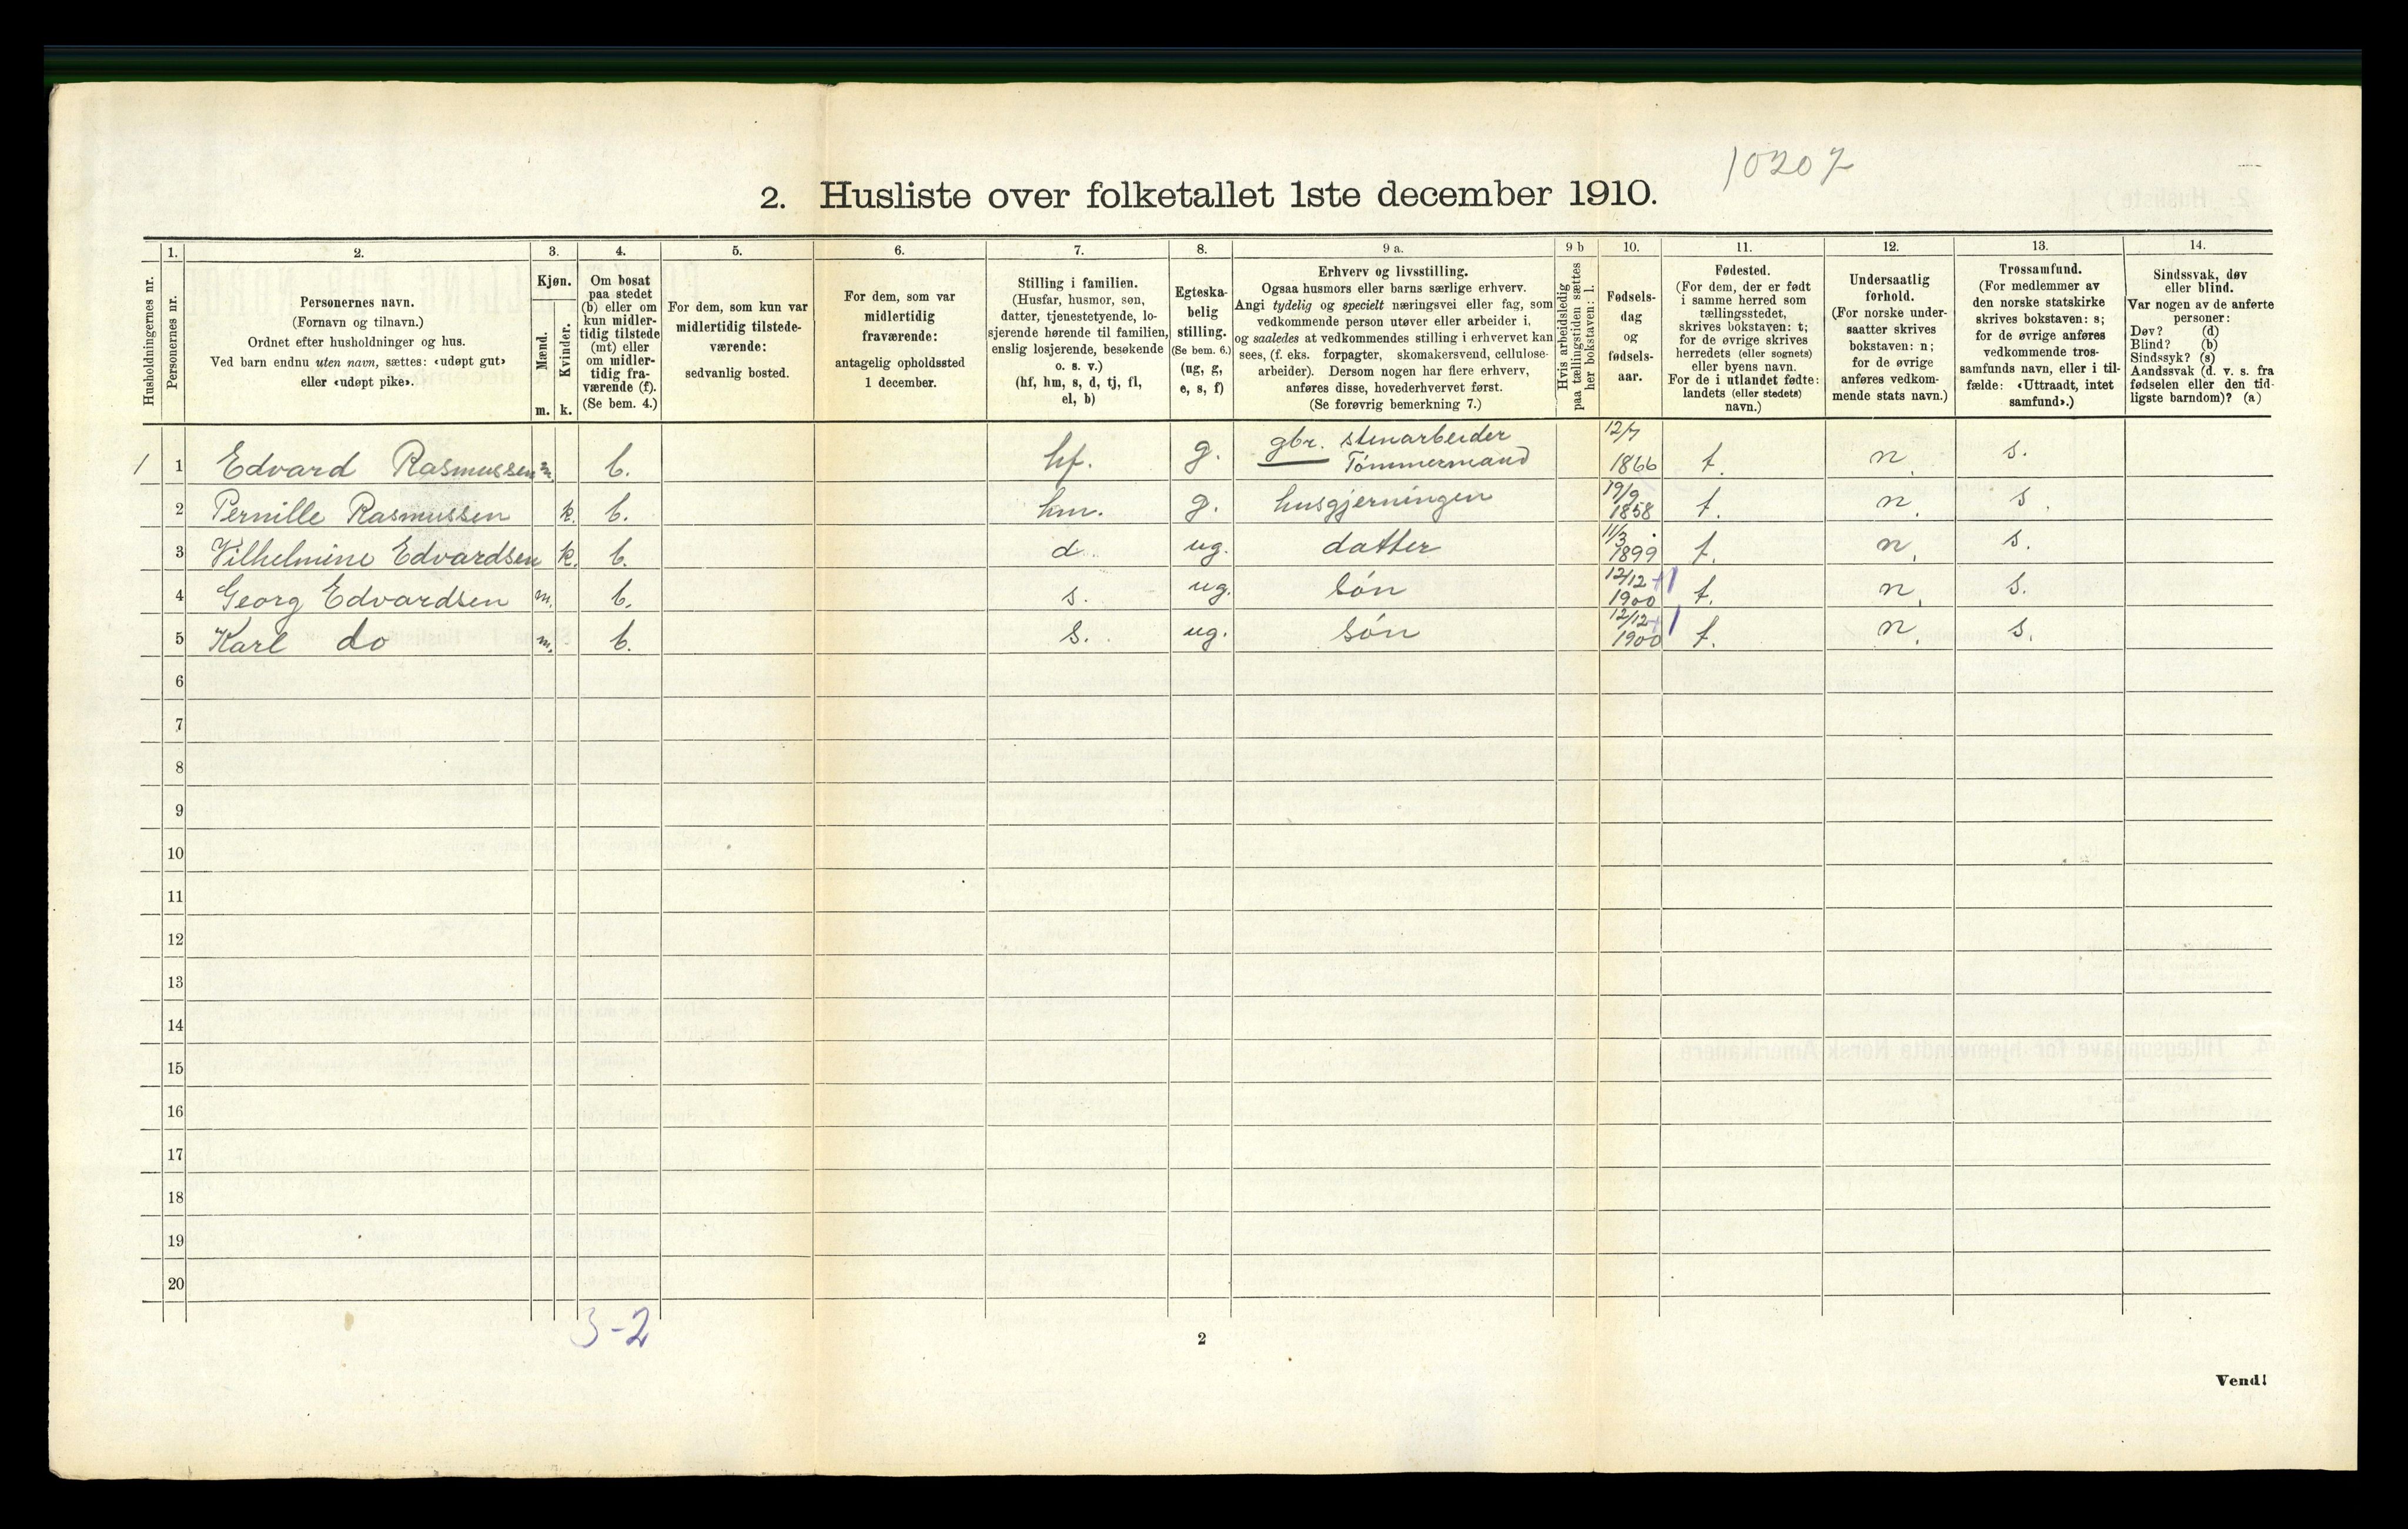 10207
2. Husliste over folketallet 1ste december 1910.
Husholdningernes nr.
1.
Personernes nr.
2.
Personernes navn.
(Fornavn og tilnavn.)
Ordnet efter husholdninger og hus.
Ved barn endnu uten navn, sættes: «udøpt gut»
eller «udøpt pike».
3.
Kjøn.
Mænd.
Kvinder.
m. k.
4.
Om bosat
paa stedet
(b) eller om
kun midler-
tidig tilstede
(mt) eller
om midler-
tidig fra-
værende (f).
(Se bem. 4.)
5.
For dem, som kun var
midlertidig tilstede-
værende:
sedvanlig bosted.
6.
For dem, som var
midlertidig
fraværende:
antagelig opholdssted
1 december.
7.
Stilling i familien.
(Husfar, husmor, søn,
datter, tjenestetyende, lo-
sjerende hørende til familien,
enslig losjerende, besøkende
o. s. v.)
(hf, hm, s, d, tj, fl,
el, b)
8.
Egteska-
belig
stilling.
(Se bem. 6.)
(ug, g,
e, s, f)
9 a.
Erhverv og livsstilling.
Ogsaa husmors eller barns særlige erhverv.
Angi tydelig og specielt næringsvei eller fag, som
vedkommende person utøver eller arbeider i,
og saaledes at vedkommendes stilling i erhvervet kan
sees, (f. eks. forpagter, skomakersvend, cellulose-
arbeider). Dersom nogen har flere erhverv,
anføres disse, hovederhvervet først.
(Se forøvrig bemerkning 7.)
9 b
Hvis arbeidsledig
paa tællingstiden sættes
her bokstaven: l.
10.
Fødsels-
dag
og
fødsels-
aar.
11.
Fødested.
(For dem, der er født
i samme herred som
tællingsstedet,
skrives bokstaven: t;
for de øvrige skrives
herredets (eller sognets)
eller byens navn.
For de i utlandet fødte:
landets (eller stedets)
navn.)
12.
Undersaatlig
forhold.
(For norske under-
saatter skrives
bokstaven: n;
for de øvrige
anføres vedkom-
mende stats navn.)
13.
Trossamfund.
(For medlemmer av
den norske statskirke
skrives bokstaven: s;
for de øvrige anføres
vedkommende tros-
samfunds navn, eller i til-
fælde: «Uttraadt, intet
samfund».)
14.
Sindssvak, døv
eller blind.
Var nogen av de anførte
personer:
Døv? (d)
Blind? (b)
Sindssyk? (s)
Aandssvak (d. v. s. fra
fødselen eller den tid-
ligste barndom)? (a)
1 1 Edvard Rasmussen m. b. hf. g. gbr. stenarbeider Tømmermand 12/7 1866 t. n. s.
2 Pernille Rasmussen k. b. hm. g. husgjerningen 19/9 1858 t. n. s.
3 Vilhelmine Edvardsen k. b. d. ug. datter 11/3 1899 t. n. s.
4 Georg Edvardsen m. b. s. ug. søn 12/12 1900 t. n. s.
5 Karl do m. b. s. ug. søn 12/12 1900 t. n. s.
6
7
8
9
10
11
12
13
14
15
16
17
18
19
20
3-2
2
Vend!